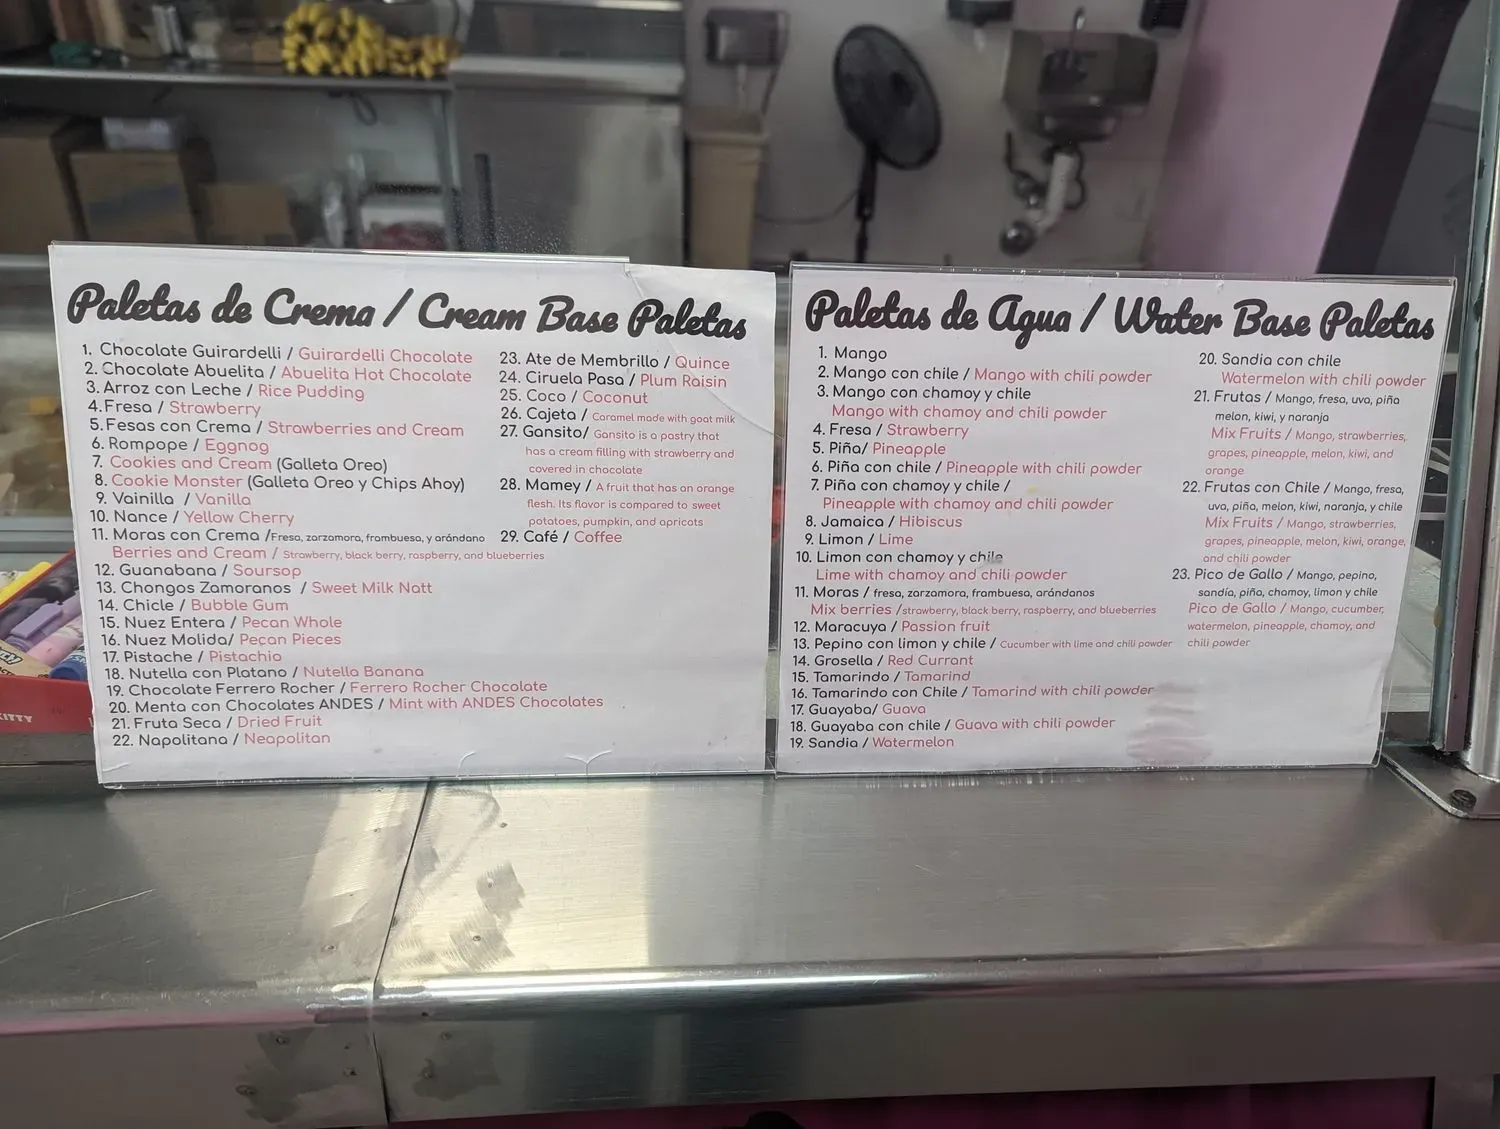 Paletas de Crema / Cream Base Paletas
1. Chocolate Guirardelli / Guirardelli Chocolate
2. Chocolate Abuelita / Abuelita Hot Chocolate
3. Arroz con Leche / Rice Pudding
4. Fresa / Strawberry
5. Fesas con Crema / Strawberries and Cream
6. Rompope / Eggnog
7. Cookies and Cream (Galleta Oreo)
8. Cookie Monster (Galleta Oreo y Chips Ahoy)
9. Vainilla / Vanilla
10. Nance / Yellow Cherry
11. Moras con Crema /Fresa, zarzamora, frambuesa, y arándano
Berries and Cream / Strawberry, black berry, raspberry, and blueberries
12. Guanabana / Soursop
13. Chongos Zamoranos / Sweet Milk Natt
14. Chicle / Bubble Gum
15. Nuez Entera / Pecan Whole
16. Nuez Molida/ Pecan Pieces
17. Pistache / Pistachio
18. Nutella con Platano / Nutella Banana
19. Chocolate Ferrero Rocher / Ferrero Rocher Chocolate
20. Menta con Chocolates ANDES / Mint with ANDES Chocolates
21. Fruta Seca / Dried Fruit
22. Napolitana / Neapolitan
23. Ate de Membrillo / Quince
24. Ciruela Pasa / Plum Raisin
25. Coco / Coconut
26. Cajeta / Caramel made with goat milk
27. Gansito/ Gansito is a pastry that
has a cream filling with strawberry and
covered in chocolate
28. Mamey / A fruit that has an orange
flesh. Its flavor is compared to sweet
potatoes, pumpkin, and apricots
29. Café / Coffee
Paletas de Agua / Water Base Paletas
1. Mango
2. Mango con chile / Mango with chili powder
3. Mango con chamoy y chile
Mango with chamoy and chili powder
4. Fresa / Strawberry
5. Piña/ Pineapple
6. Piña con chile / Pineapple with chili powder
7. Piña con chamoy y chile /
Pineapple with chamoy and chili powder
8. Jamaica / Hibiscus
9. Limon / Lime
10. Limon con chamoy y chile
Lime with chamoy and chili powder
11. Moras / fresa, zarzamora, frambuesa, arándanos
Mix berries /strawberry, black berry, raspberry, and blueberries
12. Maracuya / Passion fruit
13. Pepino con limon y chile / Cucumber with lime and chili powder
14. Grosella / Red Currant
15. Tamarindo / Tamarind
16. Tamarindo con Chile / Tamarind with chili powder
17. Guayaba/ Guava
18. Guayaba con chile / Guava with chili powder
19. Sandia / Watermelon
20. Sandia con chile
Watermelon with chili powder
21. Frutas / Mango, fresa, uva, piña
melon, kiwi, y naranja
Mix Fruits / Mango, strawberries,
grapes, pineapple, melon, kiwi, and
orange
22. Frutas con Chile / Mango, fresa,
uva, piña, melon, kiwi, naranja, y chile
Mix Fruits / Mango, strawberries,
grapes, pineapple, melon, kiwi, orange,
and chili powder
23. Pico de Gallo / Mango, pepino,
sandía, piña, chamoy, limon y chile
Pico de Gallo / Mango, cucumber,
watermelon, pineapple, chamoy, and
chili powder
KITTY